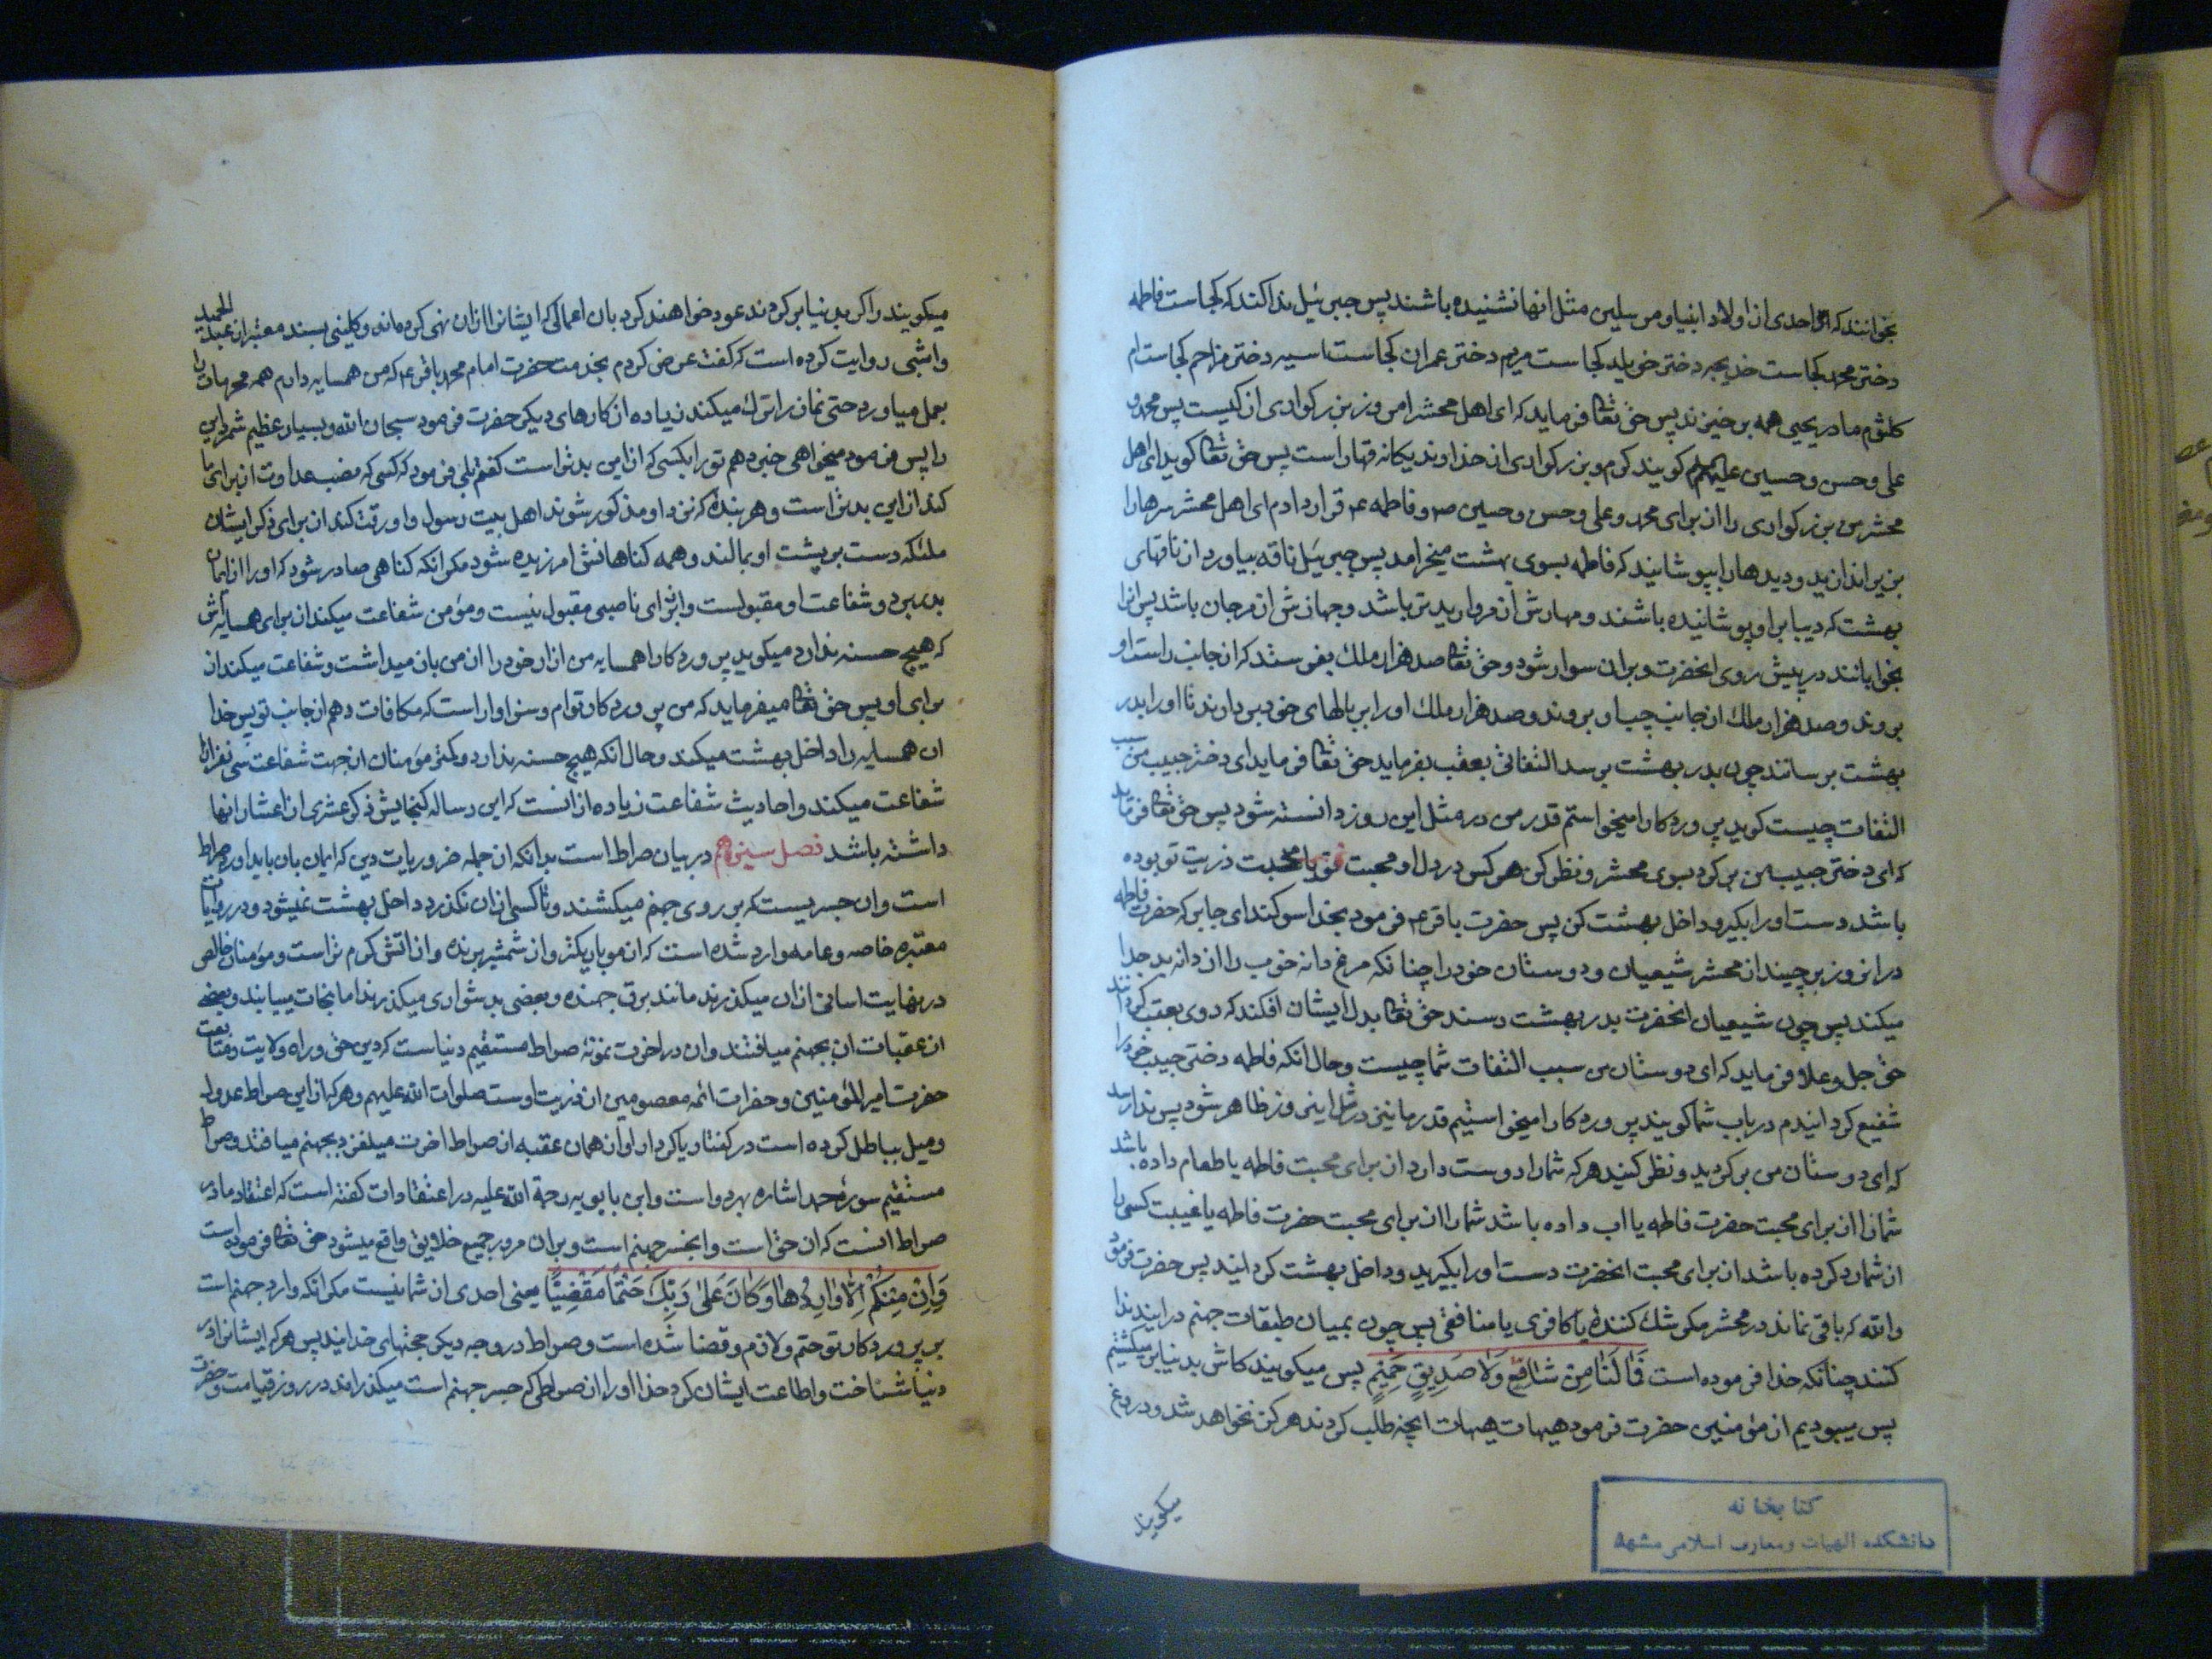 بخوانند که احدی از اولاد انبیا و مرسلین مثل انها نشنیده باشند پس جبرئیل ندا کند که کجاست فاطمه
دختر محمد کجاست خدیجه دختر خویلد کجاست مریم دختر عمران کجاست اسیه دختر مزاحم کجاست ام
کلثوم مادر یحیی همه برخیزند پس حق تعالی فرماید که ای اهل محشر امروز بزرکواری از کیست پس محمد و
علی و حسن و حسین علیهم السلام کویند کرم و بزرکواری از خداوند یکانه قهار است پس حق تعالی کوید ای اهل
محشر من بزرکواری را از برای محمد و علی و حسن و حسین و فاطمه ع قرار دادم ای اهل محشر سرها را
بزیر اندازید و دیدها را بپوشانید که فاطمه بسوی بهشت میخرامد پس جبرئیل ناقه بیاورد از ناقهای
بهشت که دیبا بر او پوشانیده باشند و مهارش از مروارید تر باشد و جهازش از مرجان باشد پس انرا
بخوابانند در پیش روی انحضرت و بر ان سوار شود و حق تعالی صد هزار ملک بفرستد که از جانب راست او
بروند و صد هزار ملک از جانب چپ او بروند و صد هزار ملک او را بر بالهای خود بردارند تا او را بدر
بهشت برسانند چون بدر بهشت برسد التفاتی بعقب بفرماید حق تعالی فرماید ای دختر حبیب من سبب
التفات چیست کوید پروردکارا میخواستم قدر من در مثل این روز دانسته شود پس حق تعالی فرماید
که ای دختر حبیب من برکرد بسوی محشر و نظر کن هر کس در دل او محبت تو یا محبت ذریت تو بوده
باشد دست او را بکیر و داخل بهشت کن پس حضرت باقر ع فرمود بخدا سوکند ای جابر که حضرت فاطمه
در انروز برچیند از محشر شیعیان و دوستان خود را چنانکه مرغ دانه خوب را از دانه بد جدا
میکند پس چون شیعیان انحضرت بدر بهشت رسند حق تعالی بدل ایشان افکند که روی بعقب کردانند
حق جل و علا فرماید که ای دوستان من سبب التفات شما چیست و حال انکه فاطمه دختر حبیب خود را
شفیع کردانیدم در باب شما کویند پروردکارا میخواستیم قدر ما نیز در مثل این روز ظاهر شود پس ندا رسد
که ای دوستان من برکردید و نظر کنید هر که شما را دوست دارد از برای محبت فاطمه یا طعام داده باشد
شما را از برای محبت حضرت فاطمه یا اب داده باشد شما را از برای محبت حضرت فاطمه یا غیبت کسی را
از شما رد کرده باشد از برای محبت انحضرت دست او را بکیرید و داخل بهشت کردانید پس حضرت فرمود
والله که باقی نماند در محشر مکر شک کننده یا کافری یا منافقی پس چون بمیان طبقات جهنم درایند ندا
کنند چنانکه خدا فرموده است فَمَا لَنَا مِنْ شَافِعٍ وَلَا صَدِیقٍ حَمِیمٍ پس میکویند کاش بدنیا بر میکشتیم
پس میبودیم از مؤمنین حضرت فرمود هیهات هیهات انچه طلب کردند هرکز نخواهد شد و دروغ
میکویند
کتابخانه
دانشکده الهیات و معارف اسلامی مشهد
میکویند و اکر بدنیا برکردند عود خواهند کرد بان اعمالی که ایشانرا از ان نهی کرده‌اند و کلینی بسند معتبر از عبد الحمید
وابشی روایت کرده است که کفت عرض کردم بخدمت حضرت امام محمد باقر ع که من همسایه دارم همه محرمات را
بعمل میاورد حتی نماز را ترک میکند زیاده از کارهای دیکر حضرت فرمود سبحان الله و بسیار عظیم شمرد این
را پس فرمود میخواهی خبر دهم تو را بکسی که از این بدتر است کفتم بلی فرمود که کسی که نصب عداوت از برای ما
کند از این بدتر است و هر بنده که نزد او مذکور شوند اهل بیت رسول و او رقت کند از برای ذکر ایشان
ملئکه دست بر پشت او بمالند و همه کناهانش امرزیده شود مکر انکه کناهی صادر شود که او را از ایمان
بدر برد و شفاعت او مقبولست و از برای ناصبی مقبول نیست و مؤمن شفاعت میکند از برای همسایه‌اش
که هیچ حسنه ندارد میکوید پروردکارا همسایه من ازار خود را از من باز میداشت و شفاعت میکند از
برای او پس حق تعالی میفرماید که من پروردکار توام و سزاوار است که مکافات دهم از جانب تو پس خدا
ان همسایه را داخل بهشت میکند و حال انکه هیچ حسنه ندارد و کمتر مؤمنان از جهت شفاعت سی نفر را
شفاعت میکند و احادیث شفاعت زیاده از انست که این رساله کنجایش ذکر عشری از اعشار انها
داشته باشد فصل در بیان صراط است بدانکه از جمله ضروریات دین که ایمان بان باید اورد صراط
است و ان جسریست که بر روی جهنم میکشند و تا کسی از ان نکذرد داخل بهشت نمیشود و در روایات
معتبره خاصه و عامه وارد شده است که از مو باریکتر و از شمشیر برنده و از اتش کرم تر است و مؤمنان خالص
در نهایت اسانی از ان میکذرند مانند برق جهنده و بعضی بدشواری میکذرند اما نجات مییابند و بعضی
از عقبات ان بجهنم میافتند و ان در اخرت نمونه صراط مستقیم دنیاست که دین حق و راه ولایت و متابعت
حضرت امیرالمؤمنین و حضرات ائمه معصومین از ذریت اوست صلوات الله علیهم و هر که از این صراط عدول
و میل بباطل کرده است در کفتار یا کردار او از همان عقبه از صراط اخرت میلغزد و بجهنم میافتد و صراط
مستقیم سوره حمد اشاره بهر دو است و ابن بابویه رحمة الله علیه در اعتقادات کفته است که اعتقاد ما در
صراط انست که ان حق است و انجسر جهنم است و بر ان مرور جمیع خلایق واقع میشود حق تعالی فرموده است
وَاِنْ مِنْکُمْ اِلَّا وَارِدُهَا کَانَ عَلٰی رَبِّکَ حَتْمًا مَقْضِیًّا یعنی احدی از شما نیست مکر انکه وارد جهنم است
بر پروردکار تو حتم و لازم و قضا شده است و صراط در وجه دیکر حجتهای خدایند پس هر که ایشانرا در
دنیا شناخت و اطاعت ایشان کرد خدا او را از صراطی که جسر جهنم است میکذراند در روز قیامت و حضرت